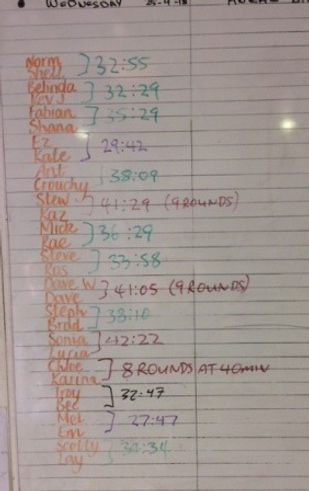 WEDNESDAY
Norm
Shell ] 32:55
Belinda
Kev J ] 32:29
Fabian
Shana ] 35:29
Ez
Kate ] 29:42
Ant
Crouchy ] 38:09
Stew
Kaz ] 41:29 (9 ROUNDS)
Mick
Rae ] 36:29
Steve
Ros ] 33:58
Dave W
Dave ] 41:05 (9 ROUNDS)
Steph
Brad ] 38:10
Sonia
Lucia ] 42:22
Chloe
Karina ] 8 ROUNDS AT 40MIN
Troy
Bec ] 32:47
Mel
Em ] 27:47
Scotty
Tay ] 34:34